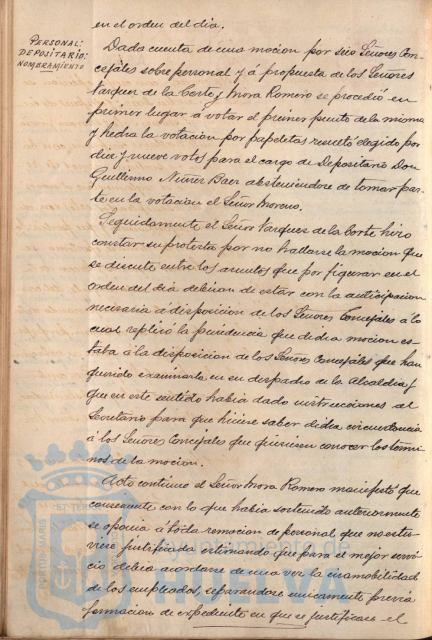 en el orden del dia.
PERSONAL:
DEPOSITARIO:
NOMBRAMIENTO
Dada cuenta de una mocion por seis Señores Con-
cejales sobre personal y á propuesta de los Señores
Vazquez de la Corte y Mora Romero se procedió en
primer lugar a votar el primer punto de la misma
y hecha la votacion por papeletas resultó elegido por
diez y nueve votos para el cargo de Depositario Don
Guillermo Nuñez Baer absteniendose de tomar par-
te en la votacion el Señor Moreno.
Seguidamente el Señor Vazquez de la Corte hizo
constar su protesta por no hallarse la mocion que
se discute entre los asuntos que por figurar en el
orden del dia debieran de estar con la anticipacion
necesaria á disposicion de los Señores Concejales á lo
cual replicó la presidencia que dicha mocion es-
taba á la disposicion de los Señores Concejales que han
querido examinarla en su despacho de la Alcaldia y
que en este sentido habia dado instrucciones al
Secretario para que hiciese saber dicha circunstancia
á los Señores Concejales que quisiesen conocer los termi-
nos de la mocion.
Acto continuo el Señor Mora Romero manifestó que
consecuente con lo que habia sostenido anteriormente
se oponia á toda remocion de personal que no estu-
viese justificada estimando que para el mejor servi-
cio debia acordarse de una vez la inamobilidad
de los empleados, separandose unicamente previa
formacion de expediente en que se justificase el